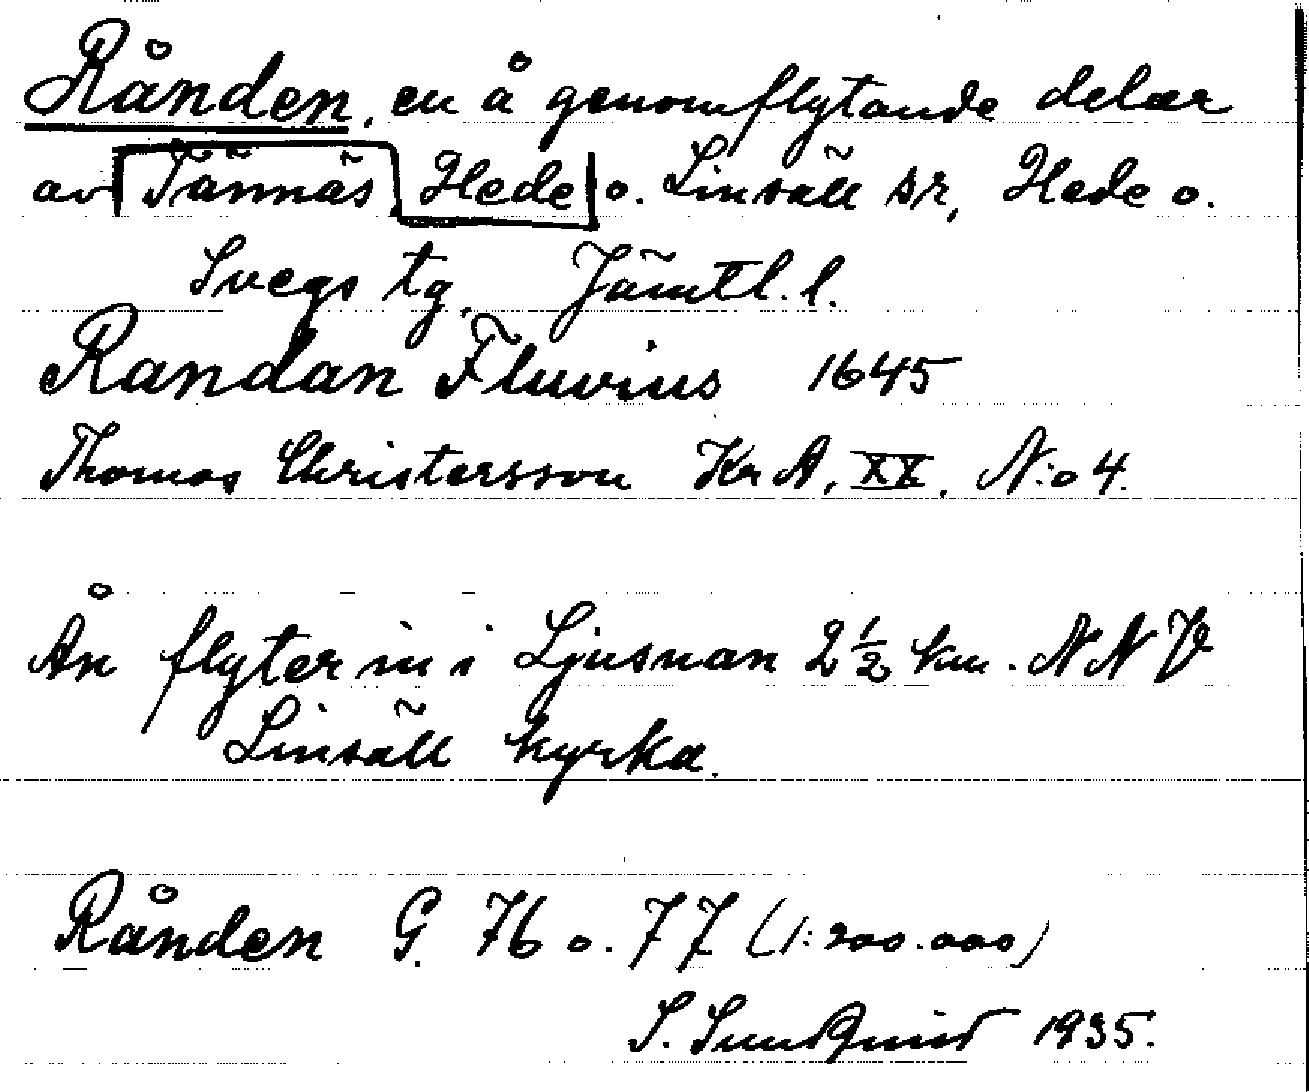 Rånden, en å genomflytande delar
av Tännäs Hede o. Linsäll sr, Hede o.
Svegs tg. Jämtl. l.
Randan Fluvius 1645
Thomas Christersson Kr A, XX, N:o 4.
Ån flyter in i Ljusnan 2 1/2 km. NNV
Linsäll kyrka.
Rånden G. 76 o. 77 (1:200.000)
S. Sundquist 1935.